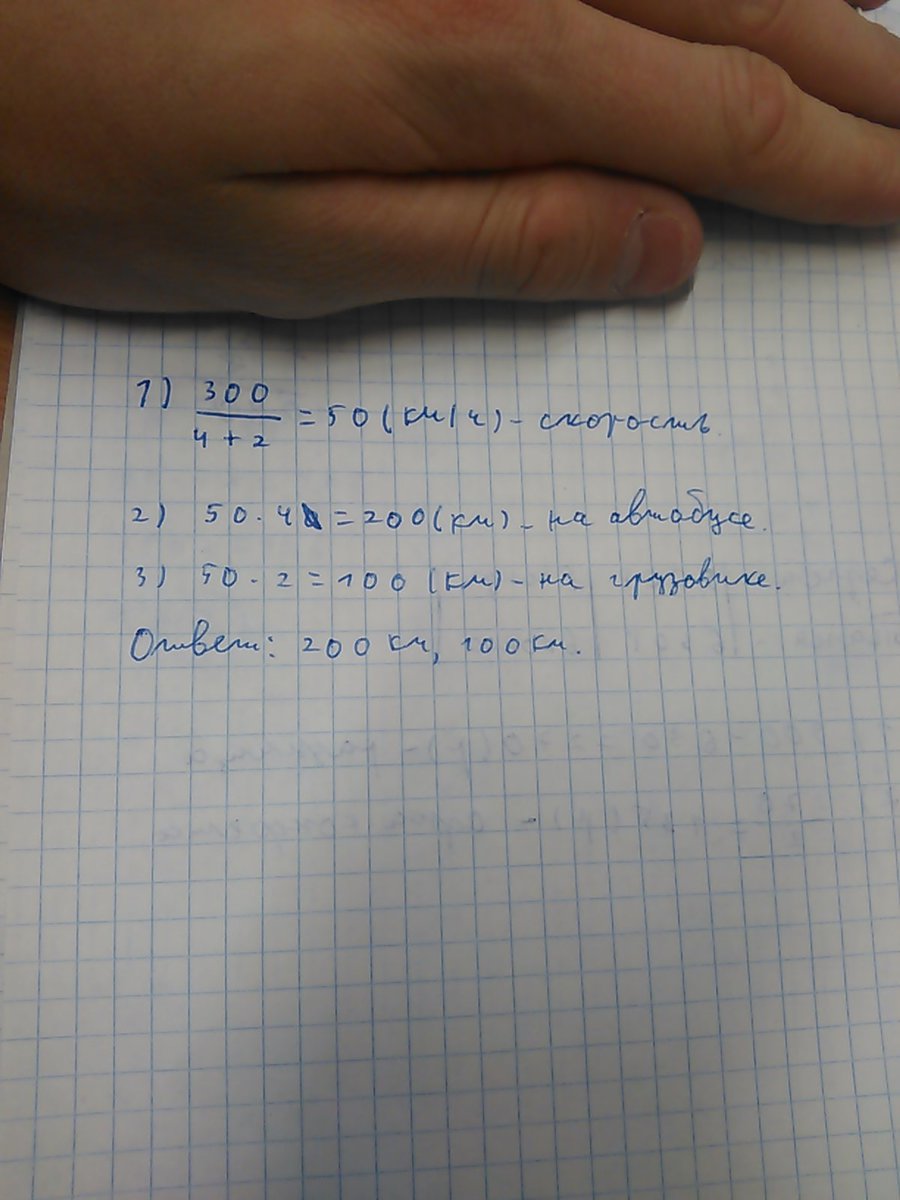 1) 300
4 + 2 = 50 (км/ч) - скорость.
2) 50 · 4 = 200 (км) - на автобусе.
3) 50 · 2 = 100 (км) - на грузовике.
Ответ: 200 км, 100 км.